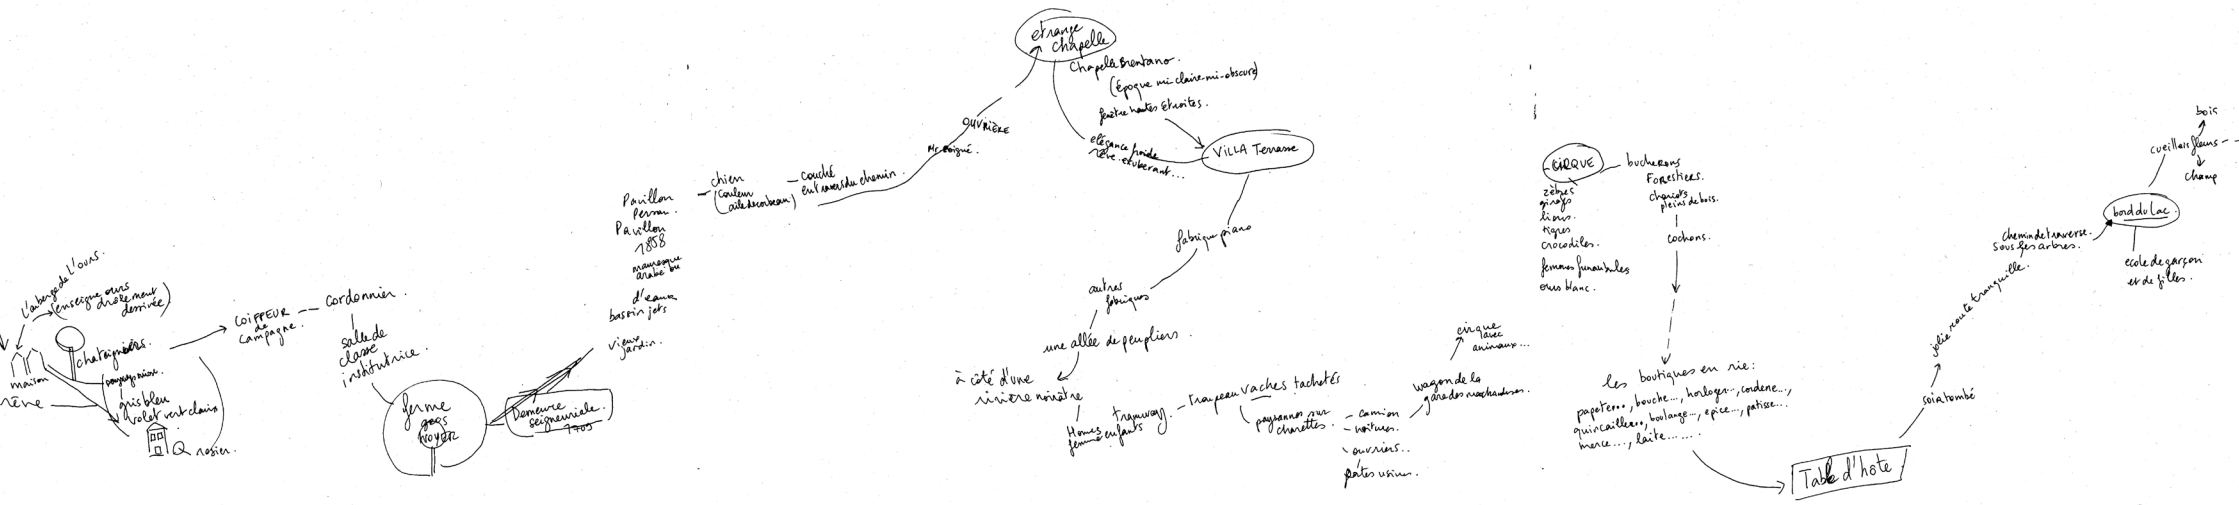 L'auberge de L'ours.
(enseigne ours
drôlement
dessinée)
chataigniers.
maison
rêve
gris bleu
volet vert clair
rosier.
COIFFEUR
de
campagne.
cordonnier.
salle de
classe
institutrice.
ferme
gros
NOYER
Demeure
seigneuriale.
1709
Pavillon
Persan.
Pavillon
1858
mauresque
arabe ou
d'eaux
bassin jets
vieux
jardin.
chien
(couleur
aile de corbeau)
couché
en travers du chemin.
Mr Poigné.
OUVRIÈRE
etrange
chapelle
Chapelle Brentano.
(Epoque mi-claire-mi-obscure)
fenêtre hautes Etroites.
elégance froide
rêve exuberant...
VILLA Terrasse
fabrique piano
autres
fabriques
une allée de peupliers.
à côté d'une
rivière noirâtre
Homes
femme enfants
tramway.
troupeau vaches tachetés
paysannes sur
charettes.
camion
voitures.
ouvriers..
portes usines.
wagon de la
gare des marchandises.
cirque
avec
animaux...
CIRQUE
zèbres
girafes
lions.
tigres
crocodiles.
femmes funambules
ours blanc.
bucherons
Forestiers.
chariots
pleins de bois.
cochons.
les boutiques en rie:
papeter..., bouche..., horloger..., cordone...,
quincaille..., boulange..., epice..., patisse...
merce...., laite.......
Table d'hôte
soir tombé
jolie route tranquille.
chemin de traverse.
sous les arbres.
bord du Lac.
ecole de garçon
et de filles.
cueillers fleurs
bois
champ